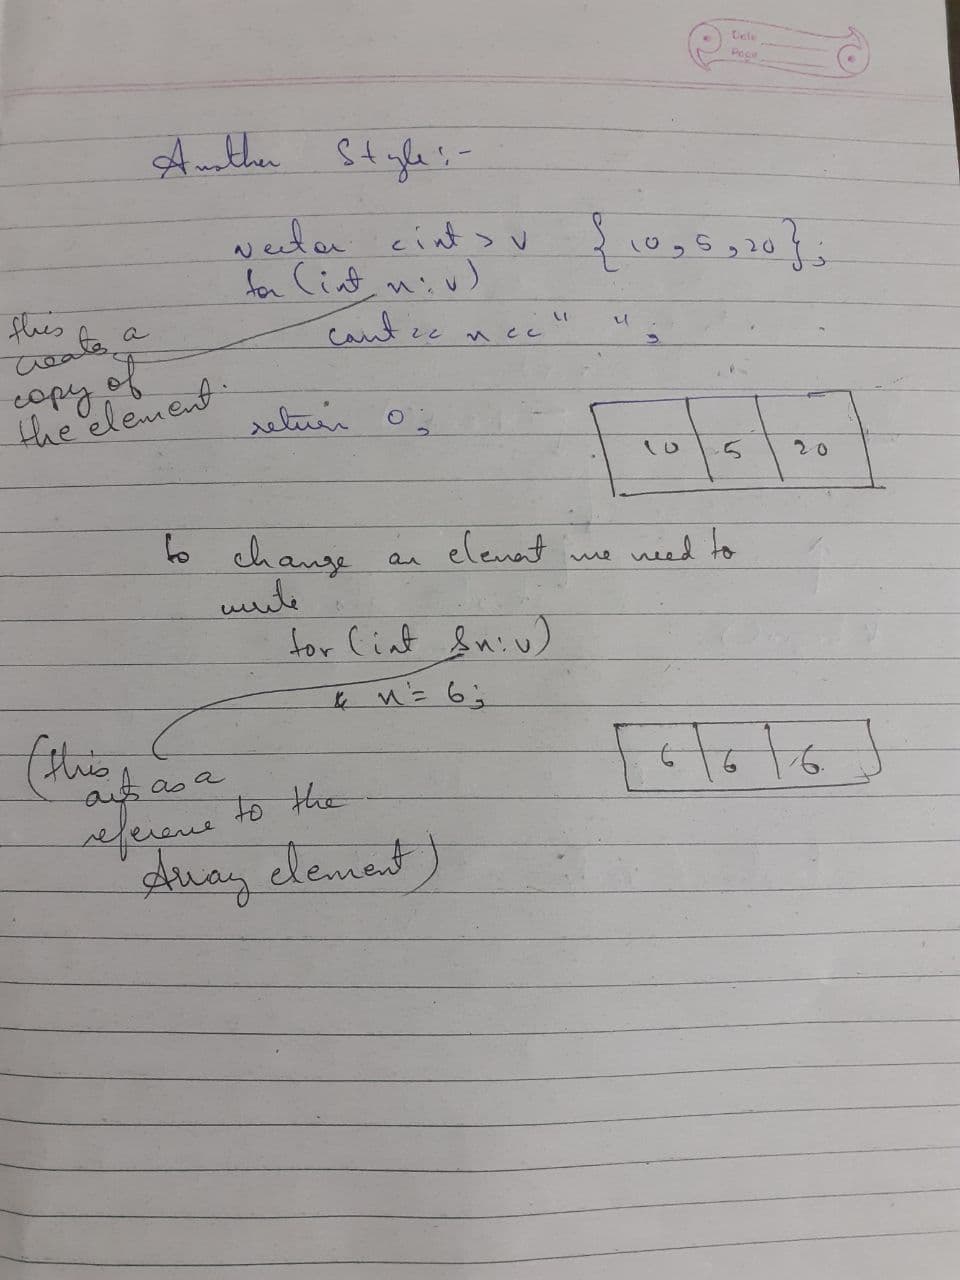 Date
Page
Another Style :-
vector <int> v {10, 5, 20};
for (int n: v)
cout << n << " ";
this
creates a
copy of
the element.
return 0;
10 5 20
to change an element we need to
write
for (int &n: v)
n = 6;
6 6 6
(this
acts as a
reference to the
Array element)